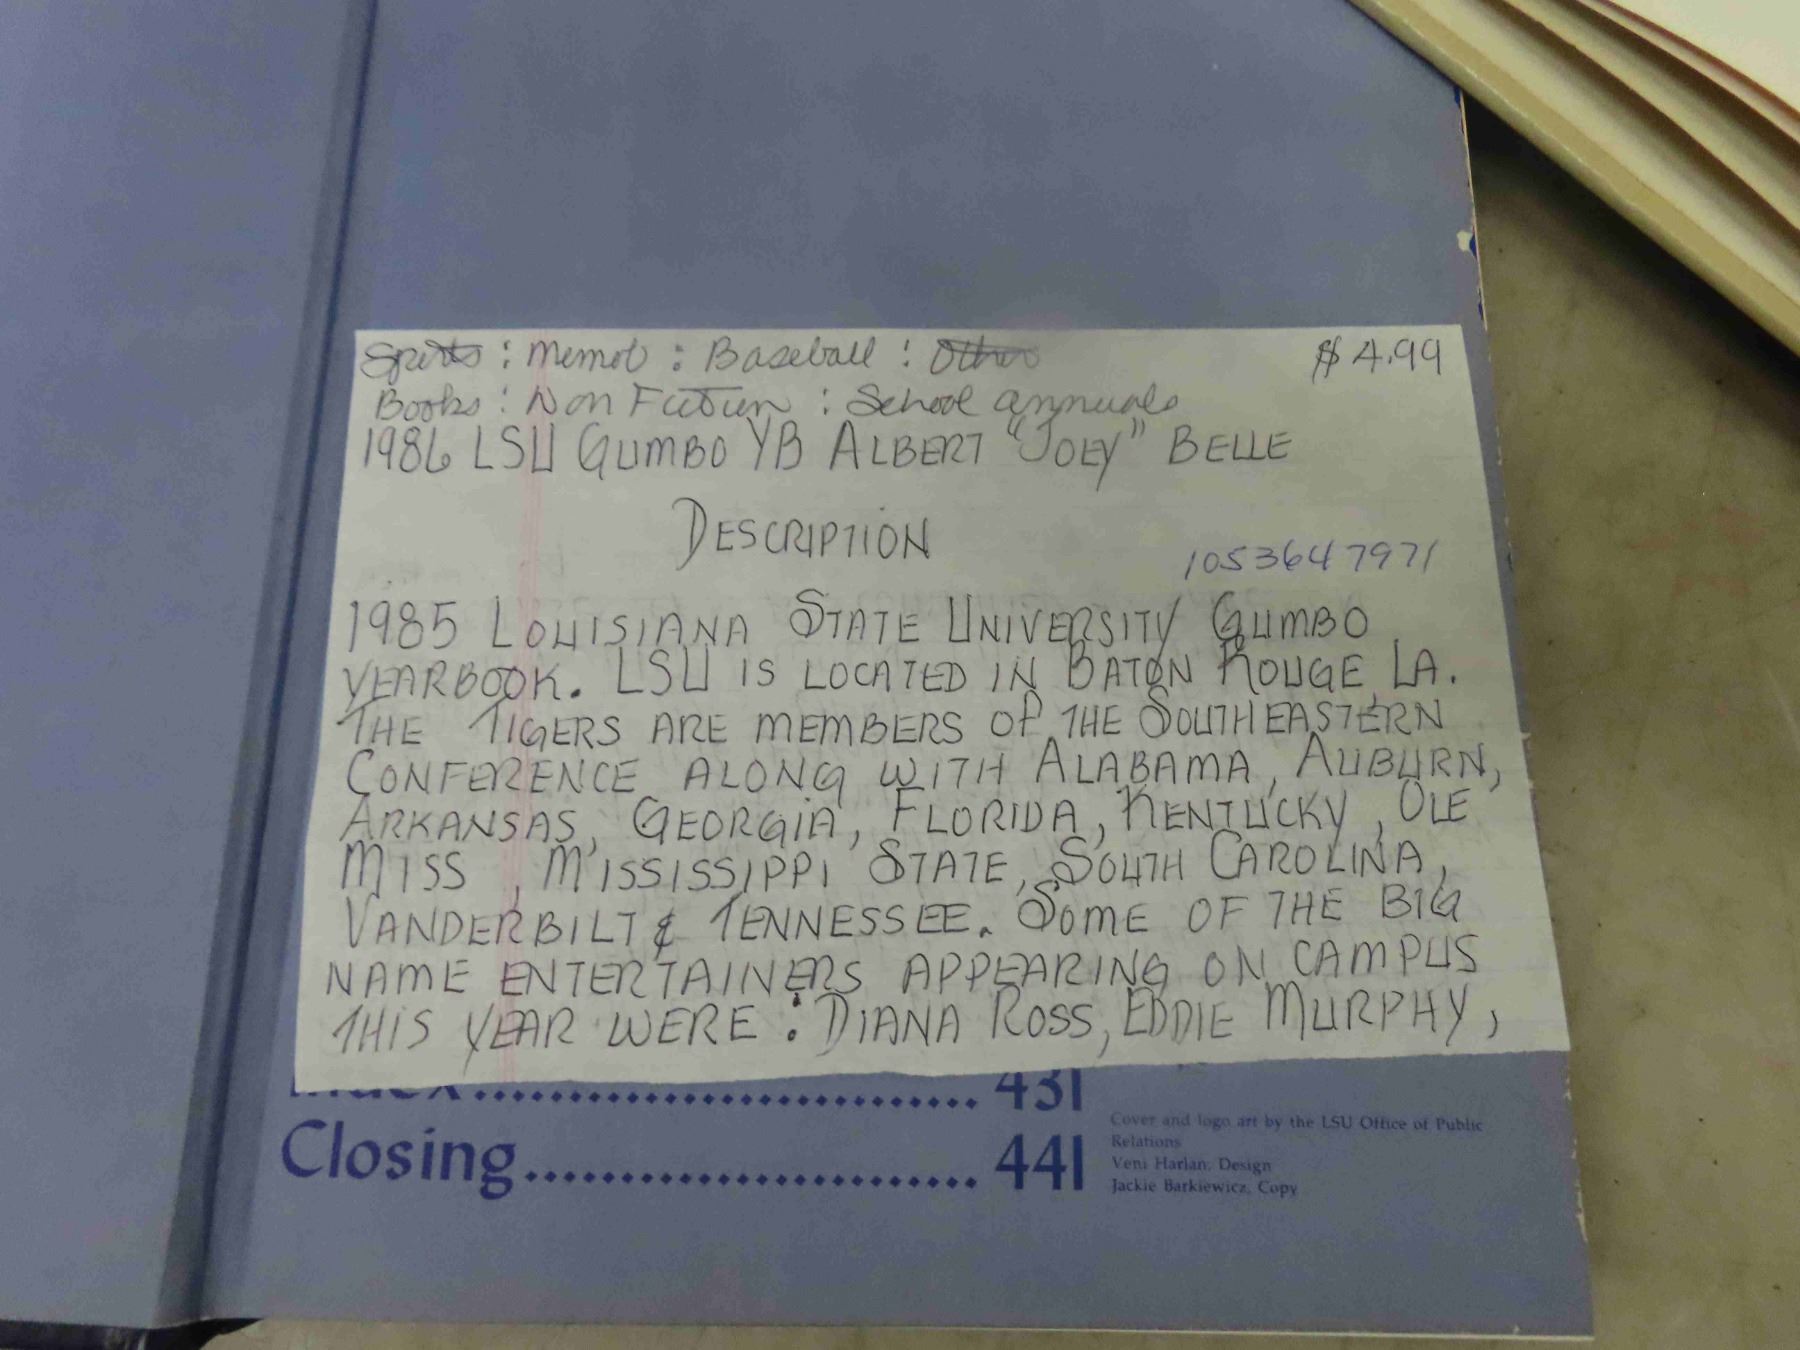 Sports : Memob : Baseball : Other $4.99
Books : Non Fiction : School annuals
1986 LSU GUMBO YB ALBERT "JOEY" BELLE
DESCRIPTION
1053647971
1985 LOUISIANA STATE UNIVERSITY GUMBO
YEARBOOK. LSU IS LOCATED IN BATON ROUGE, LA.
THE TIGERS ARE MEMBERS OF THE SOUTHEASTERN
CONFERENCE ALONG WITH ALABAMA, AUBURN,
ARKANSAS, GEORGIA, FLORIDA, KENTUCKY, OLE
MISS, MISSISSIPPI STATE, SOUTH CAROLINA,
VANDERBILT & TENNESSEE. SOME OF THE BIG
NAME ENTERTAINERS APPEARING ON CAMPUS
THIS YEAR WERE : DIANA ROSS, EDDIE MURPHY,
Index.............................. 431
Closing........................ 441
Cover and logo art by the LSU Office of Public
Relations
Veni Harlan, Design
Jackie Barkiewicz, Copy